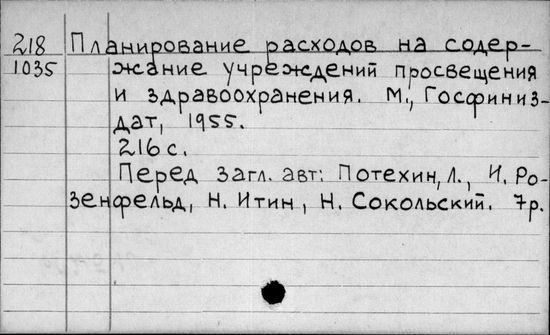 218 Планирование расходов на содер-
1035 жание учреждений просвещения
и здравоохранения. М., Госфиниз-
дат, 1955.
216 с.
Перед загл. авт: Потехин, Л., И. Ро-
зенфельд, Н. Итин, Н. Сокольский. 7р.